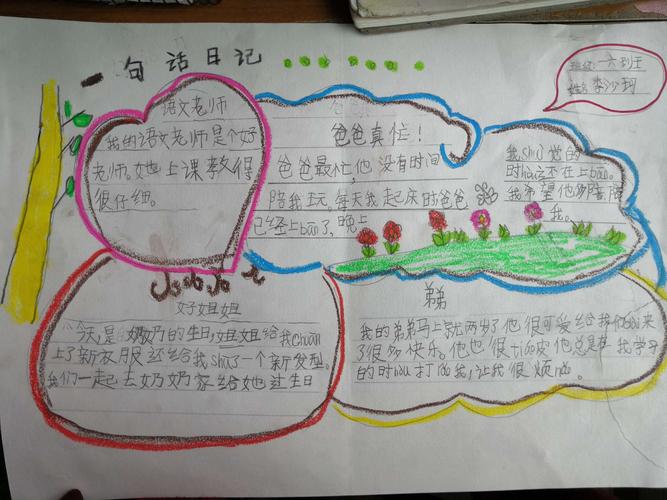 一句话日记
班级:一六班王
姓名:李沙珂
语文老师
我的语文老师是个好
老师,她上课教得
很仔细。
爸爸真忙!
爸爸最忙,他没有时间
陪我玩。每天我起床时爸爸
已经上bān了,晚上
我shuì觉的
时hou还在上bān。
我希望他多陪陪
我。
好姐姐
今天是奶奶的生日,姐姐给我chuān
上了新衣服还给我shū了一个新发型。
我们一起去奶奶家给她过生日
弟弟
我的弟弟马上就两岁了他很可爱给我们dài来
了很多快乐。他也很tiáo皮他总是在我学习
的时hou打rǎo我,让我很烦nǎo。